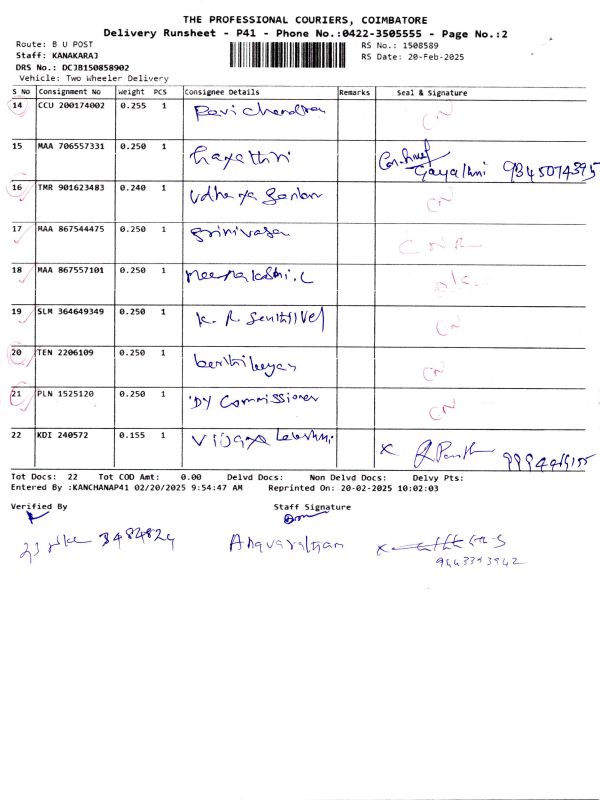 THE PROFESSIONAL COURIERS, COIMBATORE
Delivery Runsheet - P41 - Phone No.:0422-3505555 - Page No.:2
Route: B U POST
Staff: KANAKARAJ
DRS No.: DCJB150858902
Vehicle: Two Wheeler Delivery
RS No.: 1508589
RS Date: 20-Feb-2025
S No Consignment No Weight PCS Consignee Details Remarks Seal & Signature
14 CCU 200174002 0.255 1 Ravi chandran CN
15 MAA 706557331 0.250 1 Gayathri Gayathri 9345074395
16 TMR 901623483 0.240 1 Udhaya CN
17 MAA 867544475 0.250 1 Srinivasan CNR
18 MAA 867557101 0.250 1 Meenakshi.C
19 SLM 364649349 0.250 1 K. R. Senthilvel CN
20 TEN 2206109 0.250 1 CN
21 PLN 1525120 0.250 1 Dy Commissioner CN
22 KDI 240572 0.155 1 Vijaya Lakshmi
Tot Docs: 22 Tot COD Amt: 0.00 Delvd Docs: Non Delvd Docs: Delvy Pts:
Entered By :KANCHANAP41 02/20/2025 9:54:47 AM Reprinted On: 20-02-2025 10:02:03
Verified By Staff Signature